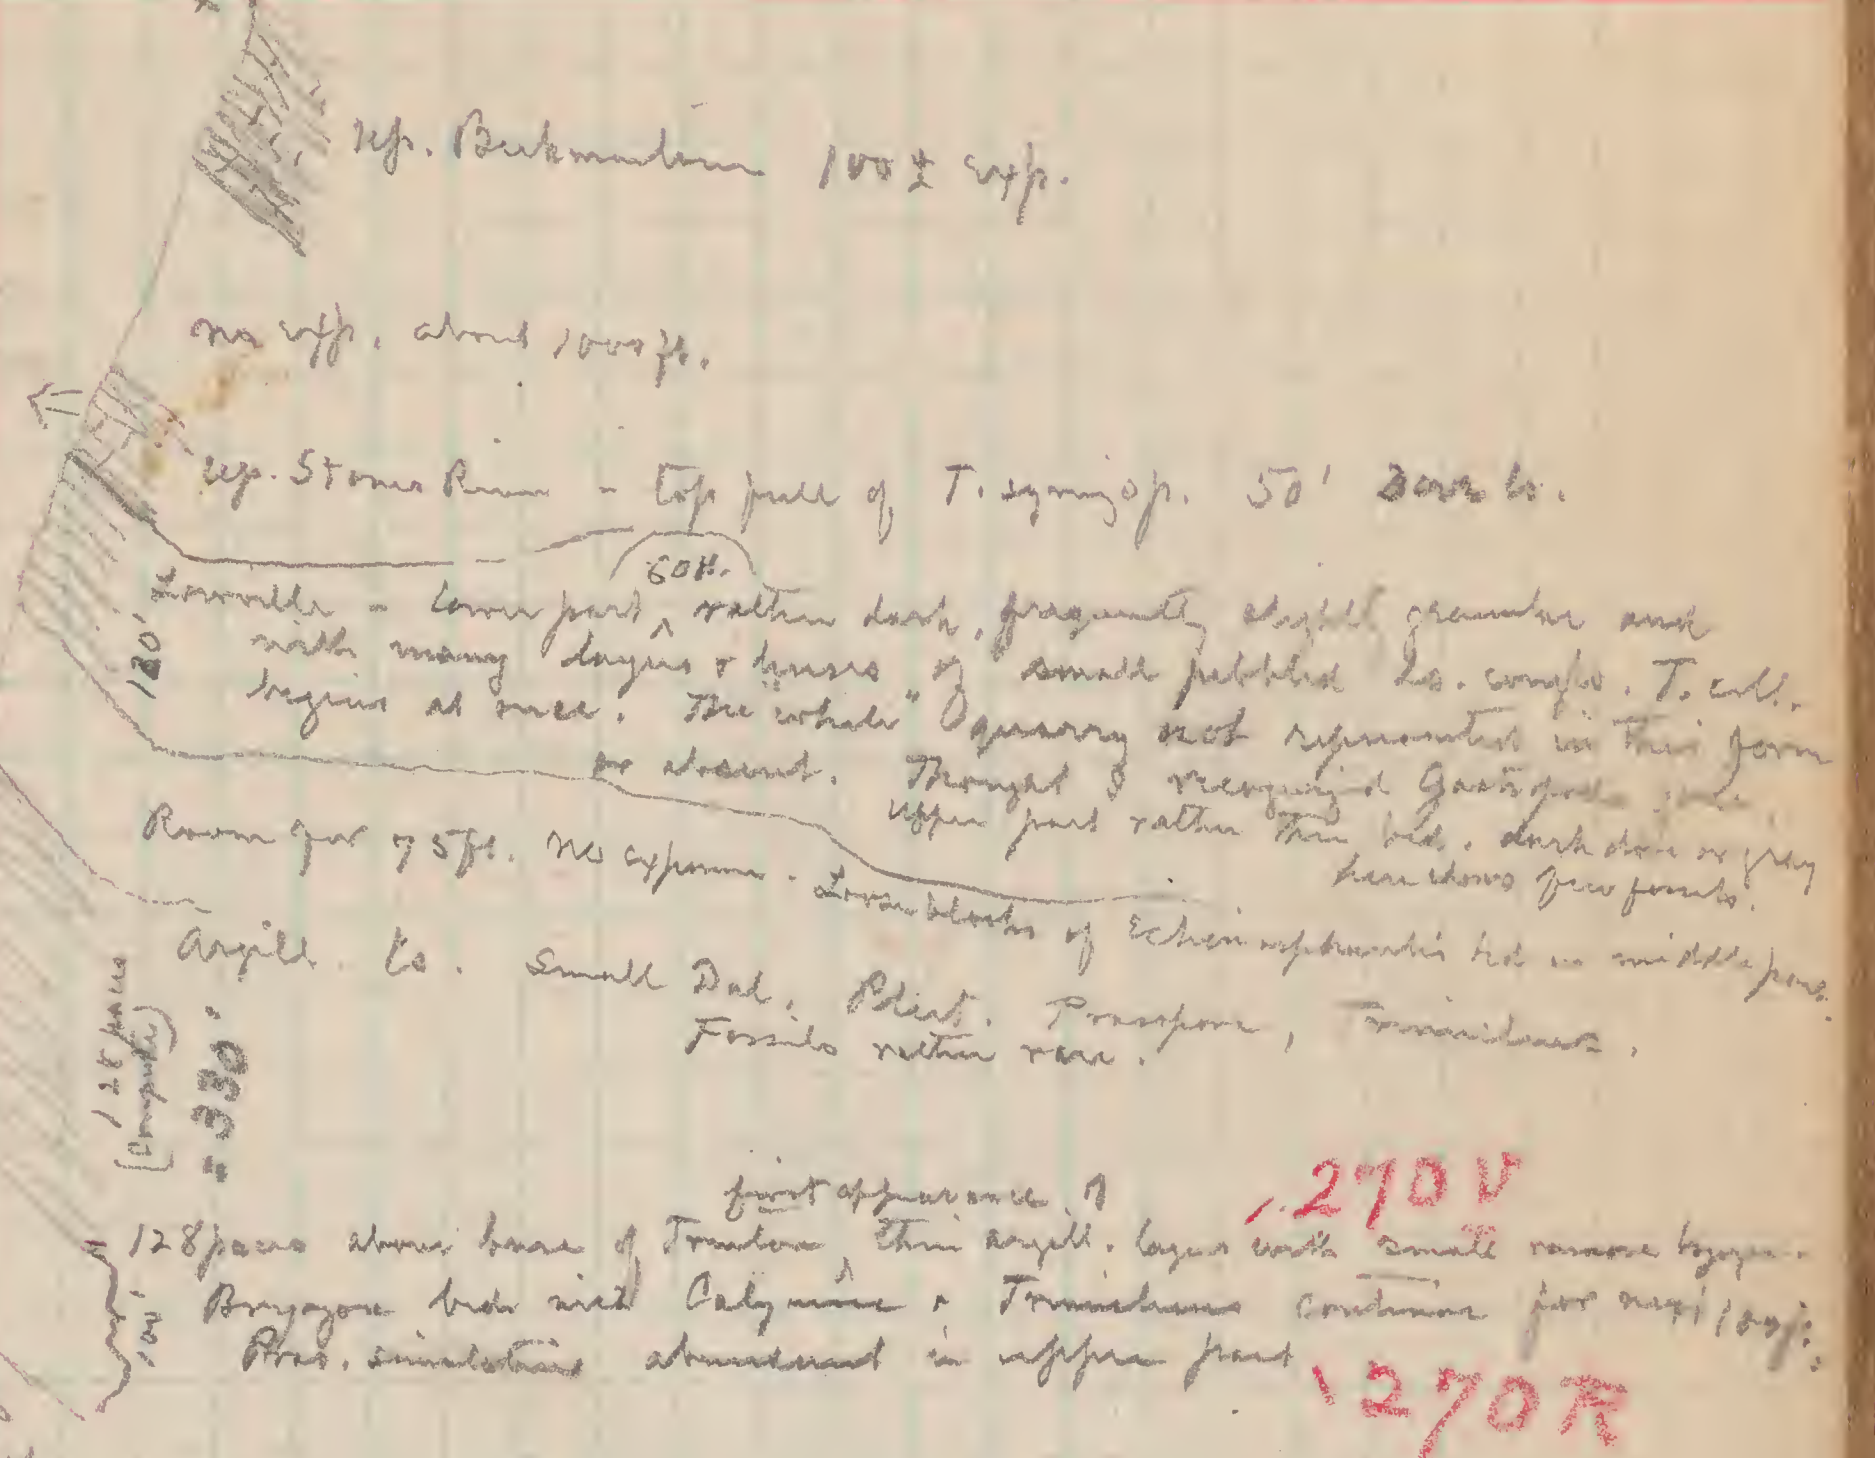 up. Beekmantown 100 ± exp.
no exp. about 1000 ft.
up. Stones River - top full of T. syringop. 50' Dove ls.
60 ft.
Lowville - lower part ^ rather dark, frequently slightly granular and
with many layers & lenses of small pebbled Ls. conglo. T. cell.
begins at once. The "whole" quarry not represented in this form
or absent. Thought I recognized Gastropods
upper part rather thin bed. dark dove or gray
here shows few fossils.
180'
Room for 75 ft. No exposure. Loose blocks of Echinosphaerites bed in middle part.
Argill. Ls. Small Dal, Plect. Prasopora, Trinucleus.
Fossils rather rare.
128 paces
(Compute)
"330"
first appearance of
.270 V
128 paces above base of Trenton ^ thin argill. layer with small ramose bryozoa
Bryozoa beds with Calymene & Trinucleus continue for next 100 ft.
Pras. simulatrix abundant in upper part
100'
270 R